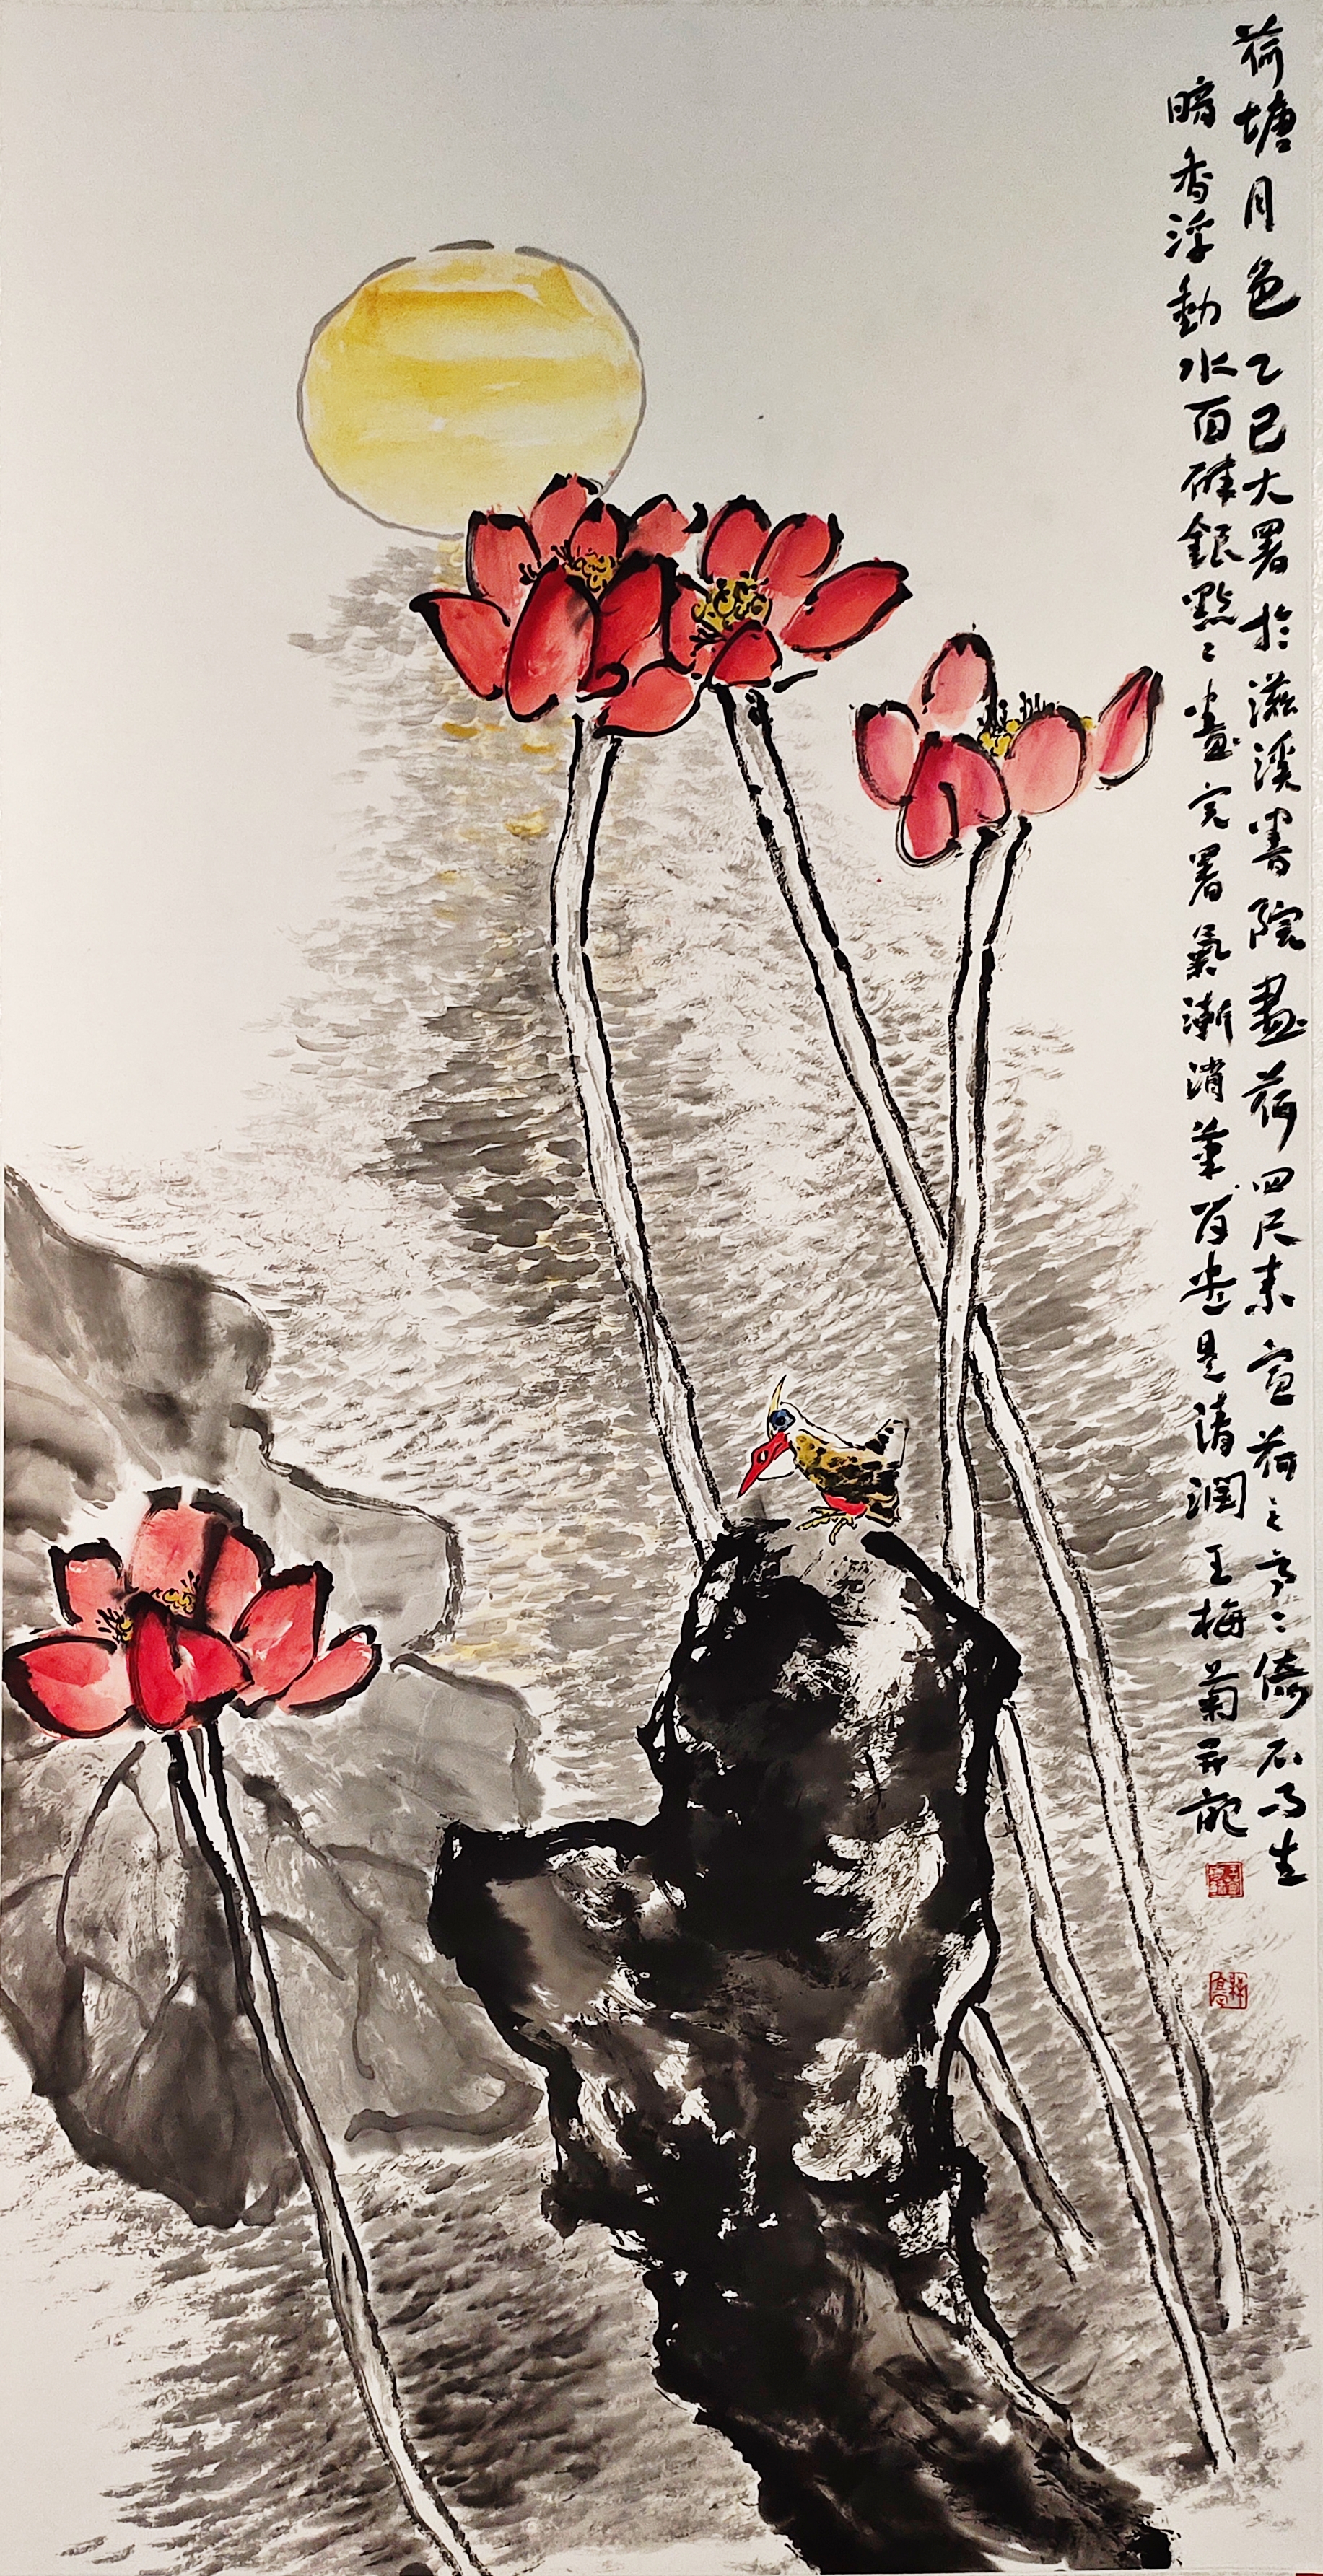 荷塘月色乙巳大暑於滋溪書院畫荷四尺素宣荷之亭亭倚石而生
暗香浮動水面碎銀點點畫完暑氣漸消筆間盡是清潤王梅菊并記